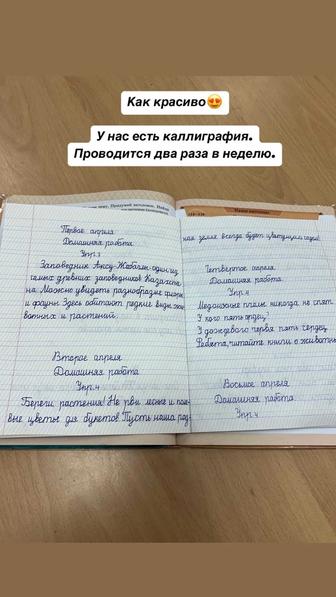 Как красиво😍
У нас есть каллиграфия.
Проводится два раза в неделю.
Первое апреля
Домашняя работа
Упр.3
Заповедник Аксу-Жабаглы один из
самых древних заповедников Казахста-
на. Можно увидеть разнообразие флоры
и фауны. Здесь обитают редкие виды жи-
вотных и растений.
Второе апреля
Домашняя работа
Упр.4
Береги растения! Не рви лесные и поле-
вые цветы для букетов. Пусть наша род-
ная земля всегда будет цветущим садом!
Четвертое апреля
Домашняя работа
Упр.4
Медоносные пчелы никогда не спят.
У кого пять сердец?
У дождевого червя пять сердец.
Ребята, читайте книги о животных
Восьмое апреля
Домашняя работа
Упр.4